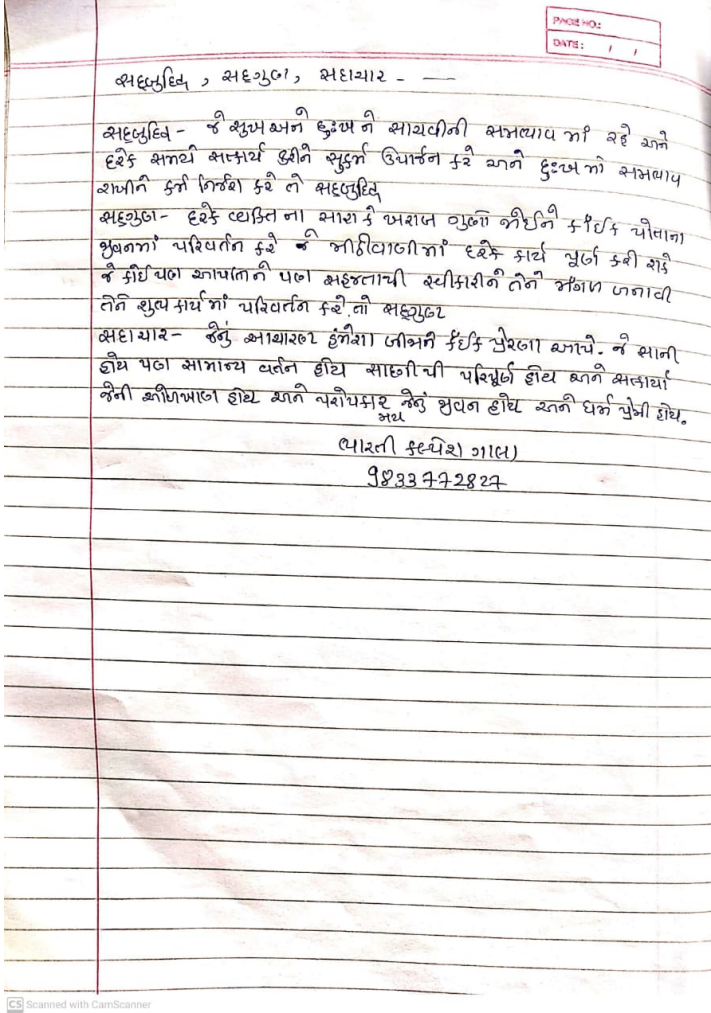 PAGE NO:
DATE: / /
સદ્દબુદ્ધિ, સદ્દગુણ, સદાચાર - —
સદ્દબુદ્ધિ - જે સુખ અને દુઃખ ને સાચવીની સમભાવ માં રહે અને
દરેક સમયે સત્કાર્ય કરીને સુકર્મ ઉપાર્જન કરે અને દુઃખ માં સમભાવ
રાખીને કર્મ નિર્જરા કરે તે સદ્દબુદ્ધિ
સદ્દગુણ - દરેક વ્યક્તિ ના સારા કે ખરાબ ગુણો જોઈને કાંઈક પોતાના
જીવનમાં પરિવર્તન કરે જે મીઠીવાણીમાં દરેક કાર્ય પૂર્ણ કરી શકે
જે કોઈ પણ આપાતને પણ સહજતાથી સ્વીકારીને તેને મંગળ બનાવી
તેને શુભ કાર્ય માં પરિવર્તન કરે. તો સદ્દગુણ
સદાચાર - જેનું આચારણ હંમેશા બીજાને કંઈક પ્રેરણા આપે. જે જ્ઞાની
હોય પણ સામાન્ય વર્તન હોય સાદગી થી પરિપૂર્ણ હોય અને સત્કાર્યો
જેની ઓળખાણ હોય અને પરોપકાર મય જેનું જીવન હોય અને ધર્મ પ્રેમી હોય.
ભારતી કલ્પેશ ગાલા
9833772827
CS Scanned with CamScanner